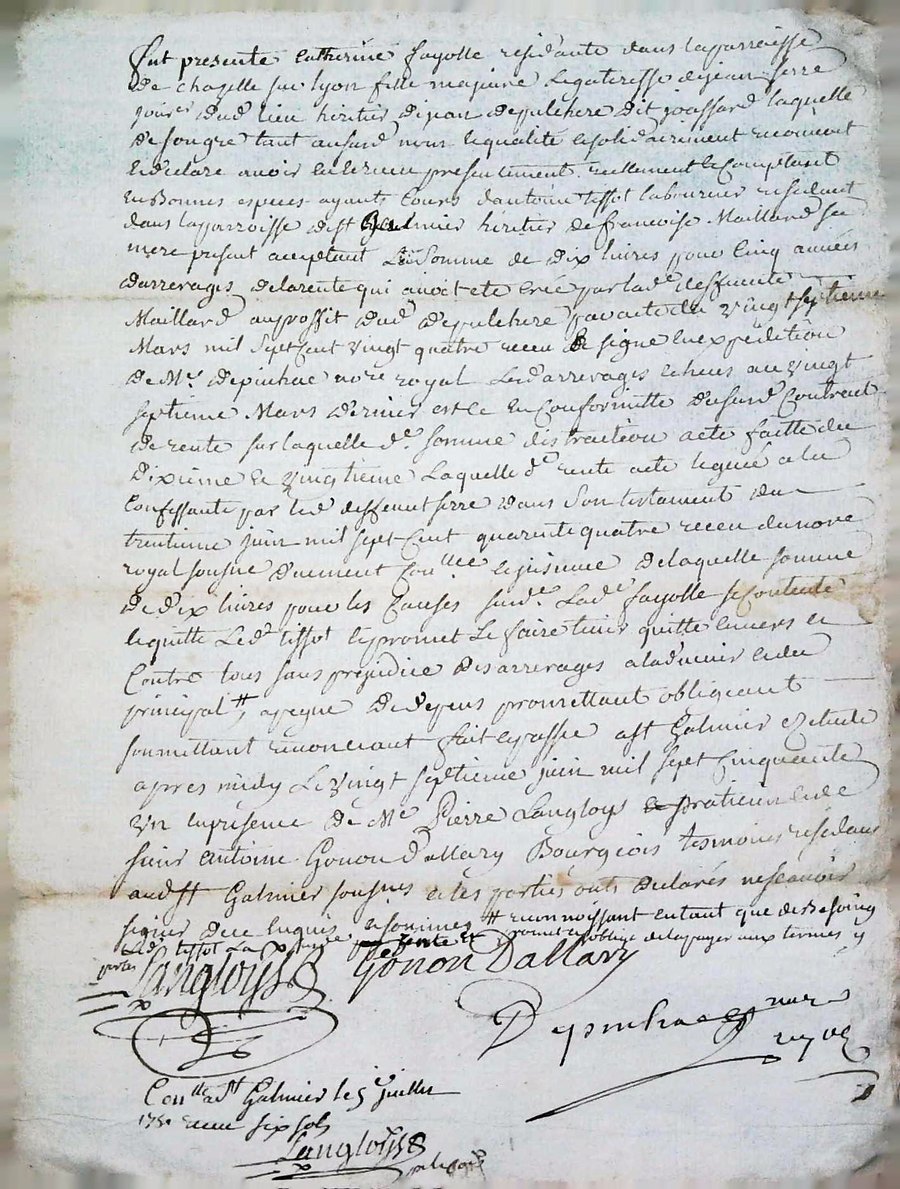 fut presente Catherine fayolle residante dans la parroisse
de chazelle sur lyon fille majeure legateresse de jean serre
dud lieu heritier de jean depulchere dit joassard laquelle
de son gre tant ausurd nom et qualité et solidairement reconnoit
et declare avoir eu et receu presentement reellement et comptant
en bonnes especes ayants cours d'antoine tissot laboureur residant
dans la parroisse de st Galmier heritier de francoise Maillard sa
mere present acceptant la somme de dix livres pour cinq années
d'arrerages de la rente qui avoit eté créé par lad.e deffunte
Maillard au proffit dud depulchere par acte du vingt septieme
Mars mil sept cent vingt quatre receu et signe en expédition
de Me depinhac nore royal lesd arrerages echeus au vingt
septieme Mars dernier et ce en conformitté dusurd contract
de rente sur laquelle de somme distraction a eté faitte du
dixieme et vingtieme laquelle de rente a eté leguée a la
confessante par led deffunt serre dans son testament du
trentieme juin mil sept cent quarente quatre receu du nore
royal sousne duement con.llee et jnsinue de laquelle somme
de dix livres pour les causes surd.e lad.e fayolle se contente
et quitte led tissot et promet le faire tenir quitte envers et
contre tous sans prejudice des arrerages a ladvenir et du
principal # a peyne de depens promettant obligeant
soumettant renonciant fait et passe a st Galmier etude
apres midy le vingt septieme juin mil sept cinquante
un en presence de Me Pierre Langloys praticien et de
sieur antoine Gonon Dallary Bourgeois tesmoins residans
aud st Galmier sousnes et les parties onts declarés ne scavoir
signer de ce enquis et sommes # reconnoissant en tant que de besoing
led tissot la rente et promet et oblige de la payer aux termes y
portes
Langloys Gonon Dallary
Depinhac nore
royal
Con.lle a st Galmier le 5e juillet
1751 receu six sols
Langloys